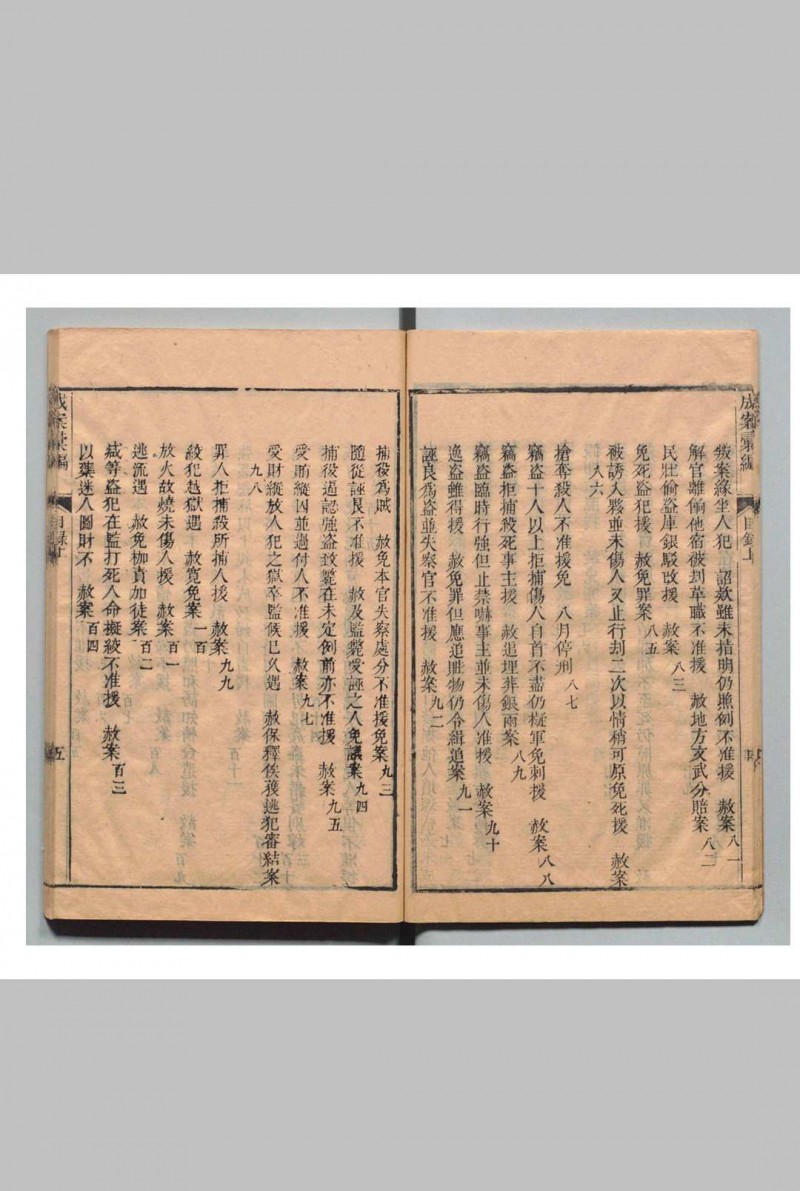 成案彙編
目錄上
叛案緣坐人犯 詔欵雖未指明仍照例不准援 赦案八一
解官離偷他宿被刦革職不准援 赦地方文武分賠案八二
民壯偷盜庫銀駁改援 赦案八三
免死盜犯援 赦免罪案八五
被誘入夥並未傷人又止行刦二次以情稍可原免死援 赦案
八六
搶奪殺人不准援免 八月停刑八七
竊盜十人以上拒捕傷人自首不盡仍擬軍免刺援 赦案八八
竊盜拒捕殺死事主援 赦追埋葬銀兩案八九
竊盜臨時行強但止禁嚇事主並未傷人准援 赦案九十
逸盜雖得援 赦免罪但應追賍物仍令緝追案九一
誣良爲盜並失察官不准援 赦案九二
捕役爲賊 赦免本官失察處分不准援免案九三
隨從誣良不准援 赦及監斃愛誣之人免議案九四
捕役逼認強盜致斃在未定例前亦不准援 赦案九五
受賄縱囚並過付人不准援 赦案九七
受財縱放人犯之獄卒監候已久遇 赦保釋俟獲逃犯審結案
九八
罪人拒捕殺所捕人援 赦案九九
絞犯越獄遇 赦寬免案一百
放火故燒未傷人援 赦案百一
逃流遇 赦免枷責加徒案百二
減等盜犯在監打死人命擬絞不准援 赦案百三
以藥迷人圖財不 赦案百四
成案彙編
目錄上
五